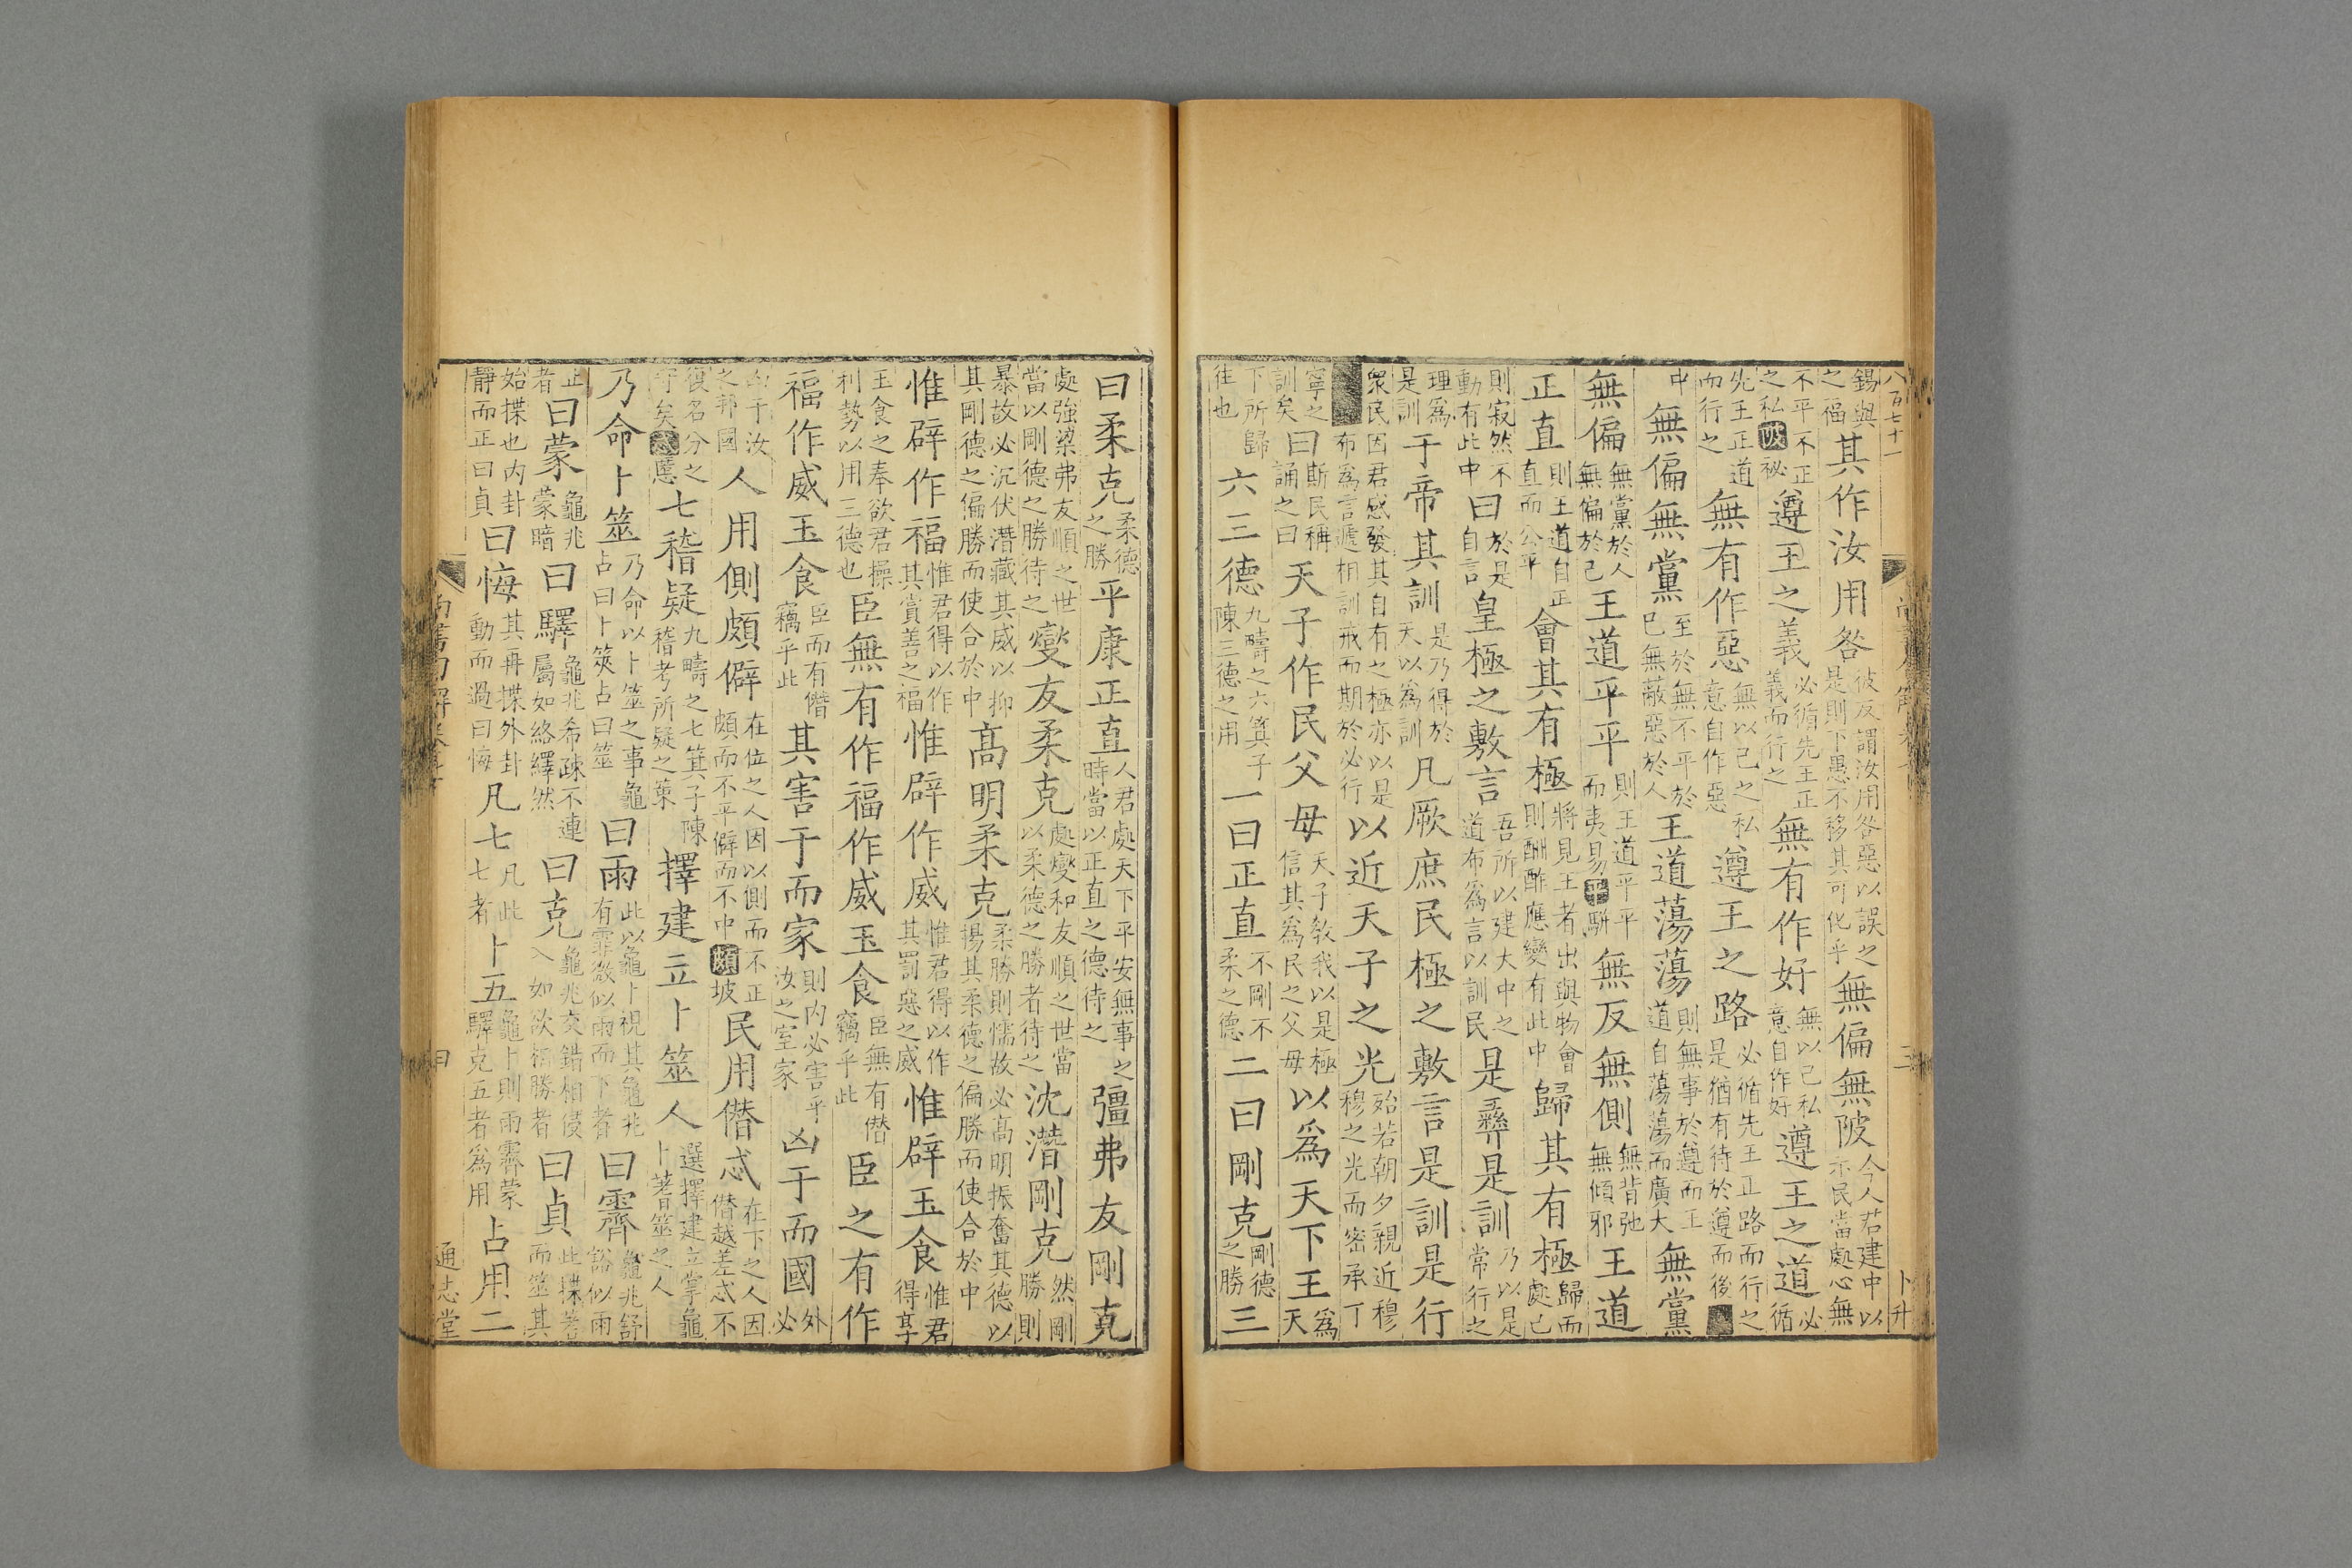 八百七十一
卜升
錫與之福其作汝用咎彼反謂汝用咎惡以誤之是則下愚不移其可化乎無偏無陂今人若建中以示民當處心無
不平不正之私陂祕遵王之義必循先王正義而行之無有作好無以己私意自作好遵王之道必循
先王正道而行之無有作惡無以己之私意自作惡遵王之路必循先王正路而行之是猶有待於遵而後
中無偏無黨至於無不平於己無蔽惡於人王道蕩蕩則無事於遵而王道自蕩蕩而廣大無黨
無偏無黨於人無偏於己王道平平則王道平平而夷易平骿無反無側無背弛無傾邪王道
正直則王道自正直而公平會其有極將見王者出與物會則酬酢應變有此中歸其有極歸而處己
則寂然不動有此中曰於是自言皇極之敷言吾所以建大中之道布為言以訓民是彞是訓乃以是常行之
理爲是訓于帝其訓是乃得於天以爲訓凡厥庶民極之敷言是訓是行
衆民因君感發其自有之極亦以是布爲言遞相訓戒而期於必行以近天子之光殆若朝夕親近穆穆之光而密承丁
寧之訓矣曰斯民稱誦之曰天子作民父母天子敎我以是極信其爲民之父母以爲天下王爲天
下所歸往也六三德九疇之六箕子陳三德之用一曰正直不剛不柔之德二曰剛克剛德之勝三
曰柔克柔德之勝平康正直人君處天下平安無事之時當以正直之德待之彊弗友剛克
處強梁弗友順之世當以剛德之勝待之燮友柔克處燮和友順之世當以柔德之勝者待之沈潛剛克然剛勝則
暴故必沉伏潛藏其威以抑其剛德之偏勝而使合於中高明柔克柔勝則懦故必高明振奮其德以揚其柔德之偏勝而使合於中
惟辟作福惟君得以作其賞善之福惟辟作威惟君得以作其罰惡之威惟辟玉食惟君得享
玉食之奉欲君操利勢以用三德也臣無有作福作威玉食臣無有僣竊乎此臣之有作
福作威玉食臣而有僣竊乎此其害于而家則內必害乎汝之室家凶于而國外必
凶于汝之邦國人用側頗僻在位之人因以側而不正頗而不平僻而不中頗坡民用僭忒在下之人因僭越差忒不
復名分之守矣忒慝七稽疑九疇之七箕子陳稽考所疑之事擇建立卜筮人選擇建立掌龜卜蓍筮之人
乃命卜筮乃命以卜筮之事龜占曰卜筴占曰筮曰雨此以龜卜視其龜兆有霏微似雨而下者曰霽龜兆舒豁似雨
止者曰蒙龜兆蒙暗曰驛龜兆希疎不連屬如絡繹然曰克龜兆交錯相侵入如欲相勝者曰貞此揲蓍而筮其
始揲也内卦靜而正曰貞曰悔其再揲外卦動而過曰悔凡七凡此七者卜五龜卜則雨霽蒙驛克五者爲用占用二
通志堂